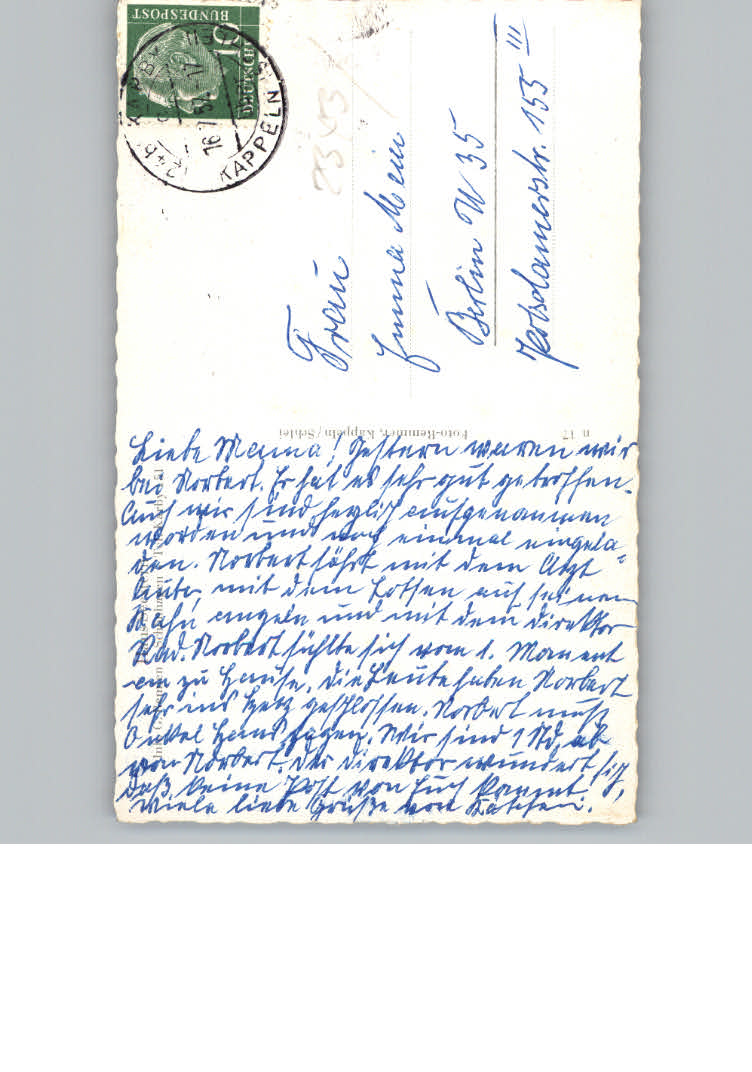 Liebe Mama! Gestern waren wir
bei Norbert. Er hat es sehr gut getroffen.
Auch wir sind herzlich aufgenommen
worden und noch einmal eingela-
den. Norbert fährt mit dem Arzt
Auto, mit dem Lotsen auf seinem
Kahn angeln und mit dem Direktor
Rad. Norbert fühlte sich vom 1. Moment
an zu Hause. Die Leute haben Norbert
sehr ins Herz geschlossen. Norbert muß
Onkel Hans sagen. Wir sind 1 Std. ab
von Norbert. Der Direktor wundert sich,
daß keine Post von Euch kommt.
Viele liebe Grüße von
Frau
Emma
Berlin W 35
Potsdamerstr. 155 III
Foto-Remmer, Kappeln/Schlei
n. 17
DEUTSCHE
BUNDESPOST
10
KAPPELN